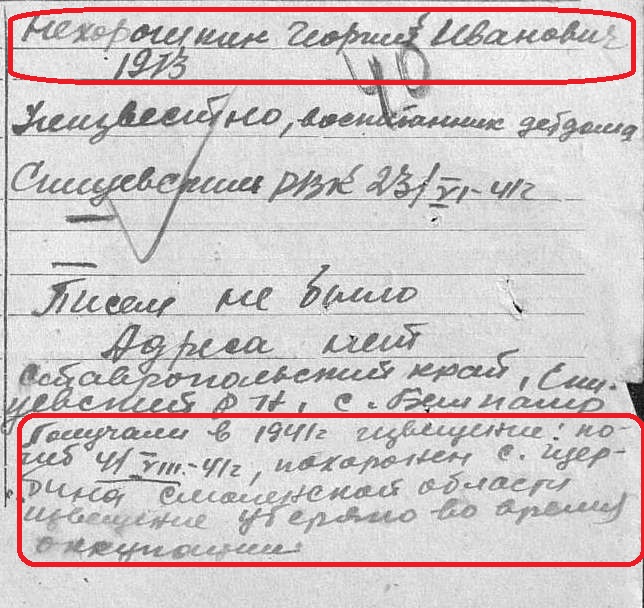 Нехорошкин Георгий Иванович
1913
40
Неизвестно, воспитанник детдома
Спицевским РВК 23/VI-41г
Писем не было
Адреса нет
Ставропольский край, Спи-
цевский р-н, с.
Получали в 1941г извещение: по-
гиб 4/VIII-41г, похоронен с. Щер-
бина Смоленской области
извещение утеряно во время
оккупации